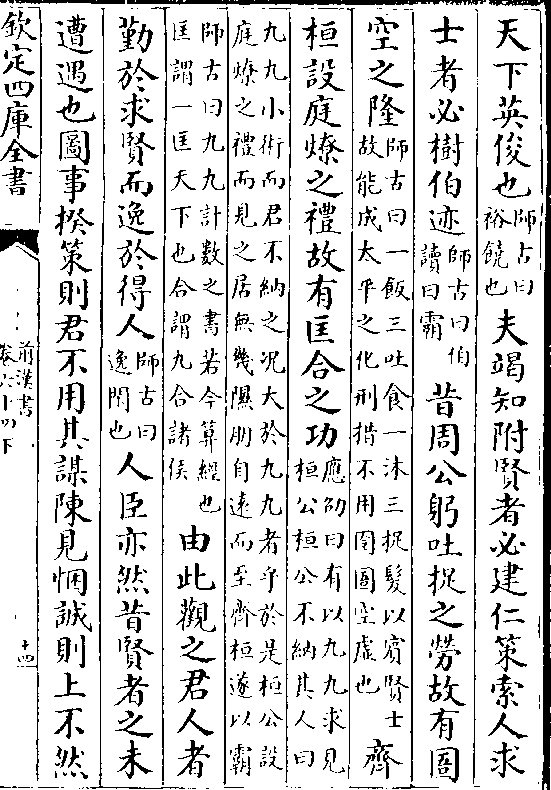 天下英俊也師古曰裕饒也夫竭知附賢者必建仁策索人求
士者必樹伯迹師古曰伯讀曰霸昔周公躬吐捉之勞故有圄
空之隆師古曰一飯三吐食一沐三捉髮以賓賢士故能成太平之化刑措不用囹圄空虛也齊
桓設庭燎之禮故有匡合之功應劭曰有以九九求見桓公桓公不納其人曰
九九小術而君不納之况大於九九者乎於是桓公設庭燎之禮而見之居無幾隰朋自遠而至齊桓遂以霸
師古曰九九計數之書若今算經也匡謂一匡天下也合謂九合諸侯由此觀之君人者
勤於求賢而逸於得人師古曰逸閒也人臣亦然昔賢者之未
遭遇也圖事揆策則君不用其謀陳見悃誠則上不然
欽定四庫全書
前漢書
卷六十四下
十四